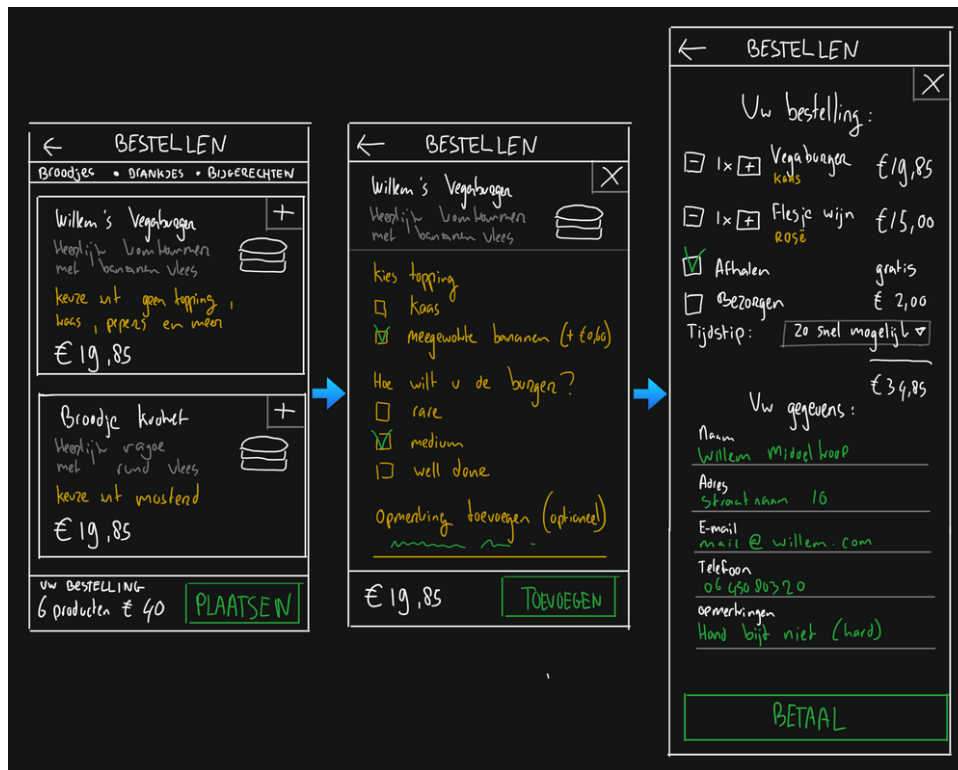 ← BESTELLEN
Broodjes • DRANKJES • BIJGERECHTEN
Willem's Vegaburger
+
Heerlijk komkommer
met bananen vlees
keuze uit geen topping,
kaas, pepers en meer
€19,85
Broodje kroket
+
Heerlijk ragoe
met rund vlees
keuze uit mosterd
€19,85
UW BESTELLING
6 producten €40
PLAATSEN
← BESTELLEN
Willem's Vegaburger
X
Heerlijk komkommer
met bananen vlees
kies topping
kaas
meegewokte bananen (+€0,60)
Hoe wilt u de burger?
rare
medium
well done
Opmerking toevoegen (optioneel)
€19,85
TOEVOEGEN
← BESTELLEN
X
Uw bestelling:
- 1x + Vegaburger €19,85
kaas
- 1x + Flesje wijn €15,00
ROSÉ
Afhalen gratis
Bezorgen € 2,00
Tijdstip: Zo snel mogelijk
€34,85
Uw gegevens:
Naam
Willem Middelkoop
Adres
Straatnaam 16
E-mail
mail@willem.com
Telefoon
06 45080320
opmerkingen
Hond bijt niet (hard)
BETAAL